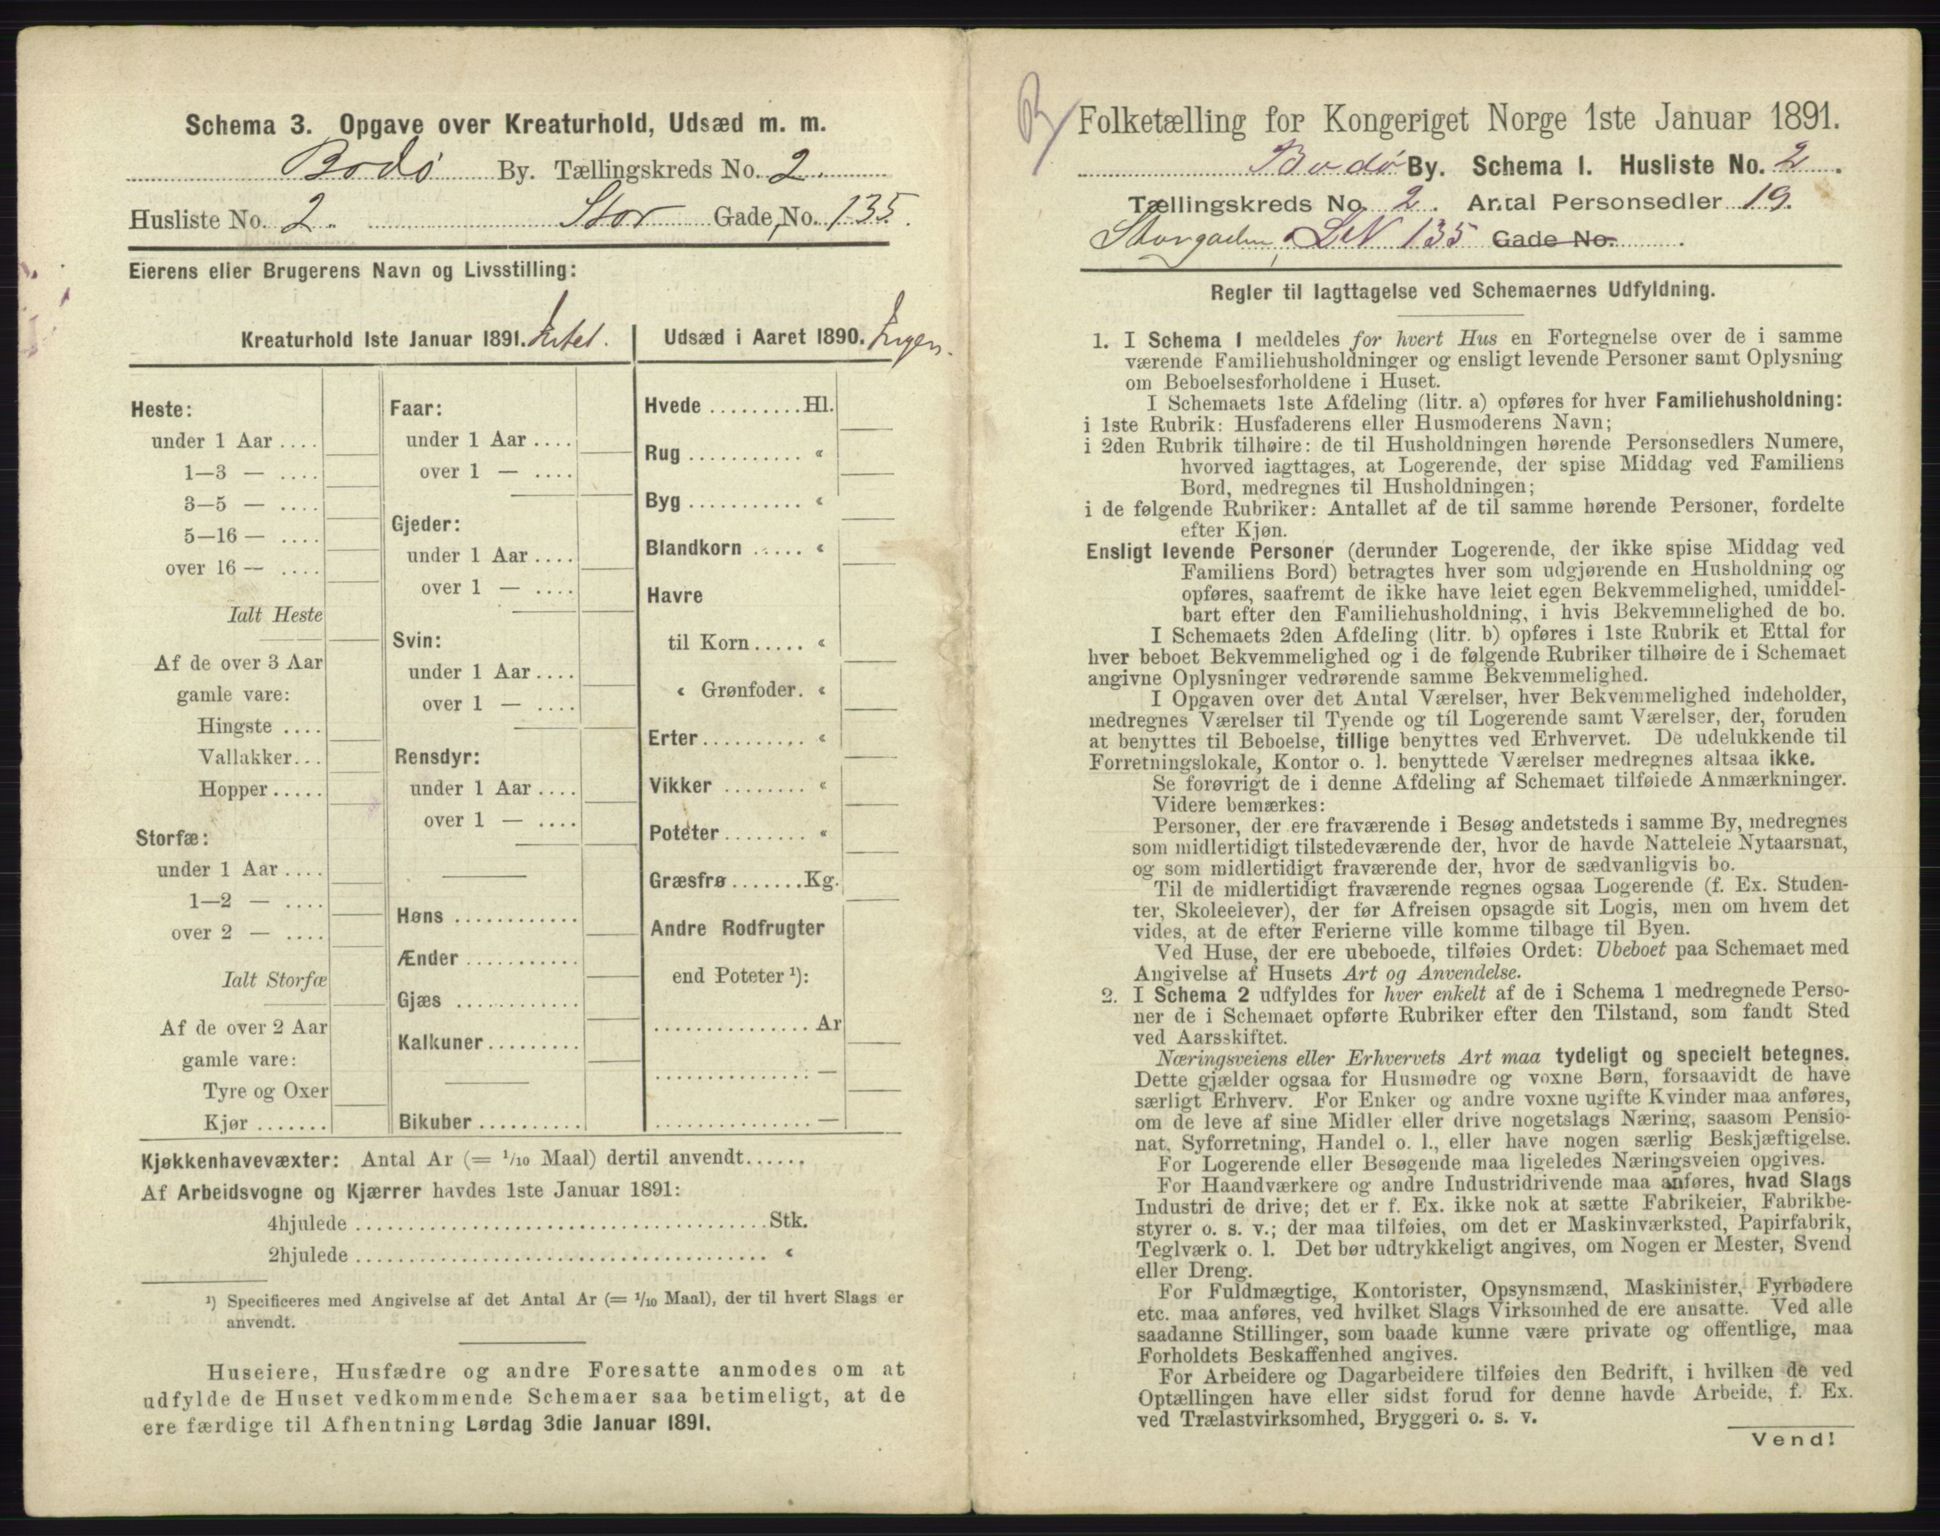 Schema 3. Opgave over Kreaturhold, Udsæd m. m.
Bodø By. Tællingskreds No. 2.
Husliste No. 2. Stor Gade, No. 135.
Eierens eller Brugerens Navn og Livsstilling:
Kreaturhold 1ste Januar 1891. Intet.
Heste:
under 1 Aar ....
1—3 — ....
3—5 — ....
5—16 — ....
over 16 — ....
Ialt Heste
Af de over 3 Aar
gamle vare:
Hingste ....
Vallakker...
Hopper.....
Storfæ:
under 1 Aar ....
1—2 — ....
over 2 — ....
Ialt Storfæ
Af de over 2 Aar
gamle vare:
Tyre og Oxer
Kjør .......
Faar:
under 1 Aar ....
over 1 — ....
Gjeder:
under 1 Aar ....
over 1 — ....
Svin:
under 1 Aar ....
over 1 — ....
Rensdyr:
under 1 Aar ....
over 1 — ....
Høns ...........
Ænder ..........
Gjæs ...........
Kalkuner.........
Bikuber ..........
Udsæd i Aaret 1890. Ingen.
Hvede .........Hl.
Rug ........... «
Byg ........... «
Blandkorn ..... «
Havre
til Korn..... «
« Grønfoder. «
Erter.......... «
Vikker ........ «
Poteter........ «
Græsfrø.......Kg.
Andre Rodfrugter
end Poteter ¹):
............... Ar
............... —
............... —
Kjøkkenhavevæxter: Antal Ar (= 1/10 Maal) dertil anvendt......
Af Arbeidsvogne og Kjærrer havdes 1ste Januar 1891:
4hjulede ......................................Stk.
2hjulede ...................................... «
¹) Specificeres med Angivelse af det Antal Ar (= 1/10 Maal), der til hvert Slags er
anvendt.
Huseiere, Husfædre og andre Foresatte anmodes om at
udfylde de Huset vedkommende Schemaer saa betimeligt, at de
ere færdige til Afhentning Lørdag 3die Januar 1891.
Folketælling for Kongeriget Norge 1ste Januar 1891.
Bodø By. Schema I. Husliste No. 2.
Tællingskreds No. 2. Antal Personsedler 19.
Storgaden, LN 135 Gade No.
Regler til Iagttagelse ved Schemaernes Udfyldning.
1. I Schema 1 meddeles for hvert Hus en Fortegnelse over de i samme
værende Familiehusholdninger og ensligt levende Personer samt Oplysning
om Beboelsesforholdene i Huset.
I Schemaets 1ste Afdeling (litr. a) opføres for hver Familiehusholdning:
i 1ste Rubrik: Husfaderens eller Husmoderens Navn;
i 2den Rubrik tilhøire: de til Husholdningen hørende Personsedlers Numere,
hvorved iagttages, at Logerende, der spise Middag ved Familiens
Bord, medregnes til Husholdningen;
i de følgende Rubriker: Antallet af de til samme hørende Personer, fordelte
efter Kjøn.
Ensligt levende Personer (derunder Logerende, der ikke spise Middag ved
Familiens Bord) betragtes hver som udgjørende en Husholdning og
opføres, saafremt de ikke have leiet egen Bekvemmelighed, umiddel-
bart efter den Familiehusholdning, i hvis Bekvemmelighed de bo.
I Schemaets 2den Afdeling (litr. b) opføres i 1ste Rubrik et Ettal for
hver beboet Bekvemmelighed og i de følgende Rubriker tilhøire de i Schemaet
angivne Oplysninger vedrørende samme Bekvemmelighed.
I Opgaven over det Antal Værelser, hver Bekvemmelighed indeholder,
medregnes Værelser til Tyende og til Logerende samt Værelser, der, foruden
at benyttes til Beboelse, tillige benyttes ved Erhvervet. De udelukkende til
Forretningslokale, Kontor o. l. benyttede Værelser medregnes altsaa ikke.
Se forøvrigt de i denne Afdeling af Schemaet tilføiede Anmærkninger.
Videre bemærkes:
Personer, der ere fraværende i Besøg andetsteds i samme By, medregnes
som midlertidigt tilstedeværende der, hvor de havde Natteleie Nytaarsnat,
og som midlertidigt fraværende der, hvor de sædvanligvis bo.
Til de midlertidigt fraværende regnes ogsaa Logerende (f. Ex. Studen-
ter, Skoleelever), der før Afreisen opsagde sit Logis, men om hvem det
vides, at de efter Ferierne ville komme tilbage til Byen.
Ved Huse, der ere ubeboede, tilføies Ordet: Ubeboet paa Schemaet med
Angivelse af Husets Art og Anvendelse.
2. I Schema 2 udfyldes for hver enkelt af de i Schema 1 medregnede Perso-
ner de i Schemaet opførte Rubriker efter den Tilstand, som fandt Sted
ved Aarsskiftet.
Næringsveiens eller Erhvervets Art maa tydeligt og specielt betegnes.
Dette gjælder ogsaa for Husmødre og voxne Børn, forsaavidt de have
særligt Erhverv. For Enker og andre voxne ugifte Kvinder maa anføres,
om de leve af sine Midler eller drive nogetslags Næring, saasom Pensio-
nat, Syforretning, Handel o. l., eller have nogen særlig Beskjæftigelse.
For Logerende eller Besøgende maa ligeledes Næringsveien opgives.
For Haandværkere og andre Industridrivende maa anføres, hvad Slags
Industri de drive; det er f. Ex. ikke nok at sætte Fabrikeier, Fabrikbe-
styrer o. s. v.; der maa tilføies, om det er Maskinværksted, Papirfabrik,
Teglværk o. l. Det bør udtrykkeligt angives, om Nogen er Mester, Svend
eller Dreng.
For Fuldmægtige, Kontorister, Opsynsmænd, Maskinister, Fyrbødere
etc. maa anføres, ved hvilket Slags Virksomhed de ere ansatte. Ved alle
saadanne Stillinger, som baade kunne være private og offentlige, maa
Forholdets Beskaffenhed angives.
For Arbeidere og Dagarbeidere tilføies den Bedrift, i hvilken de ved
Optællingen have eller sidst forud for denne havde Arbeide, f. Ex.
ved Trælastvirksomhed, Bryggeri o. s. v.
Vend!